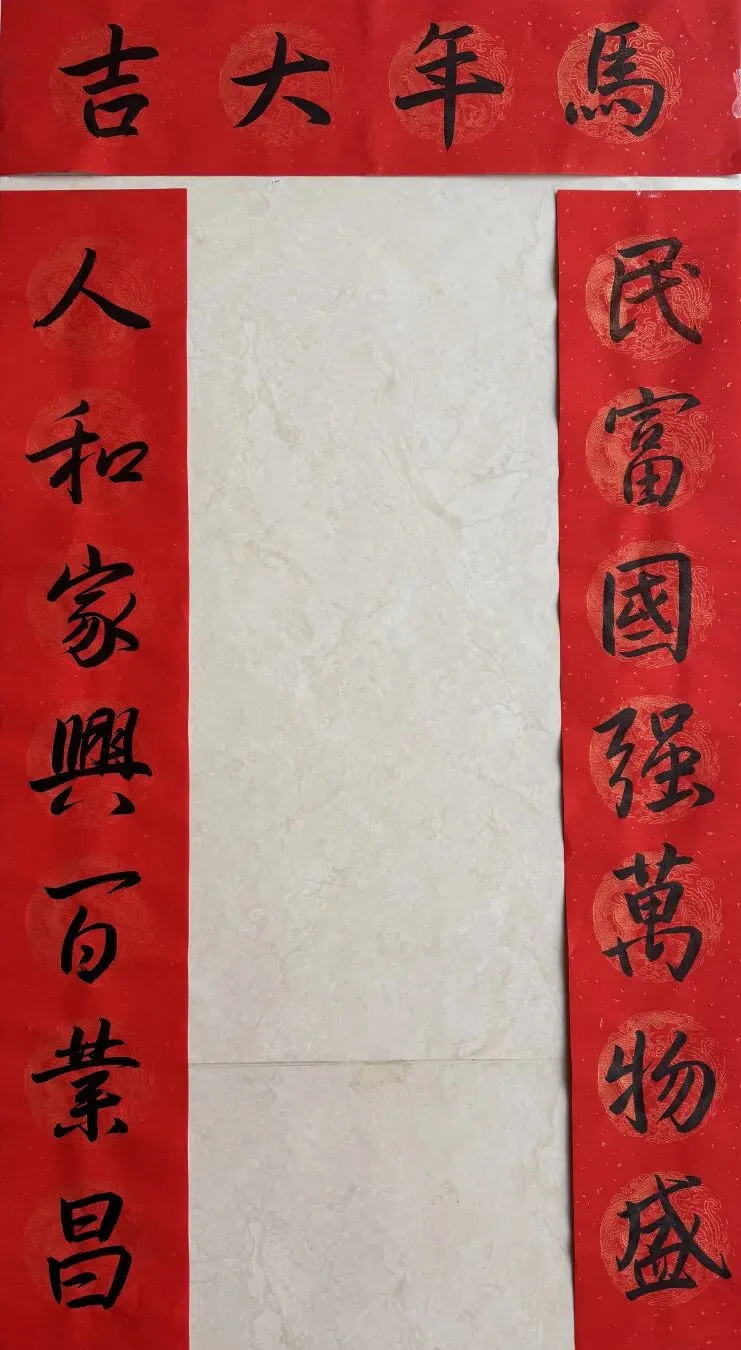 馬年大吉
民富國强萬物盛
人和家興百業昌